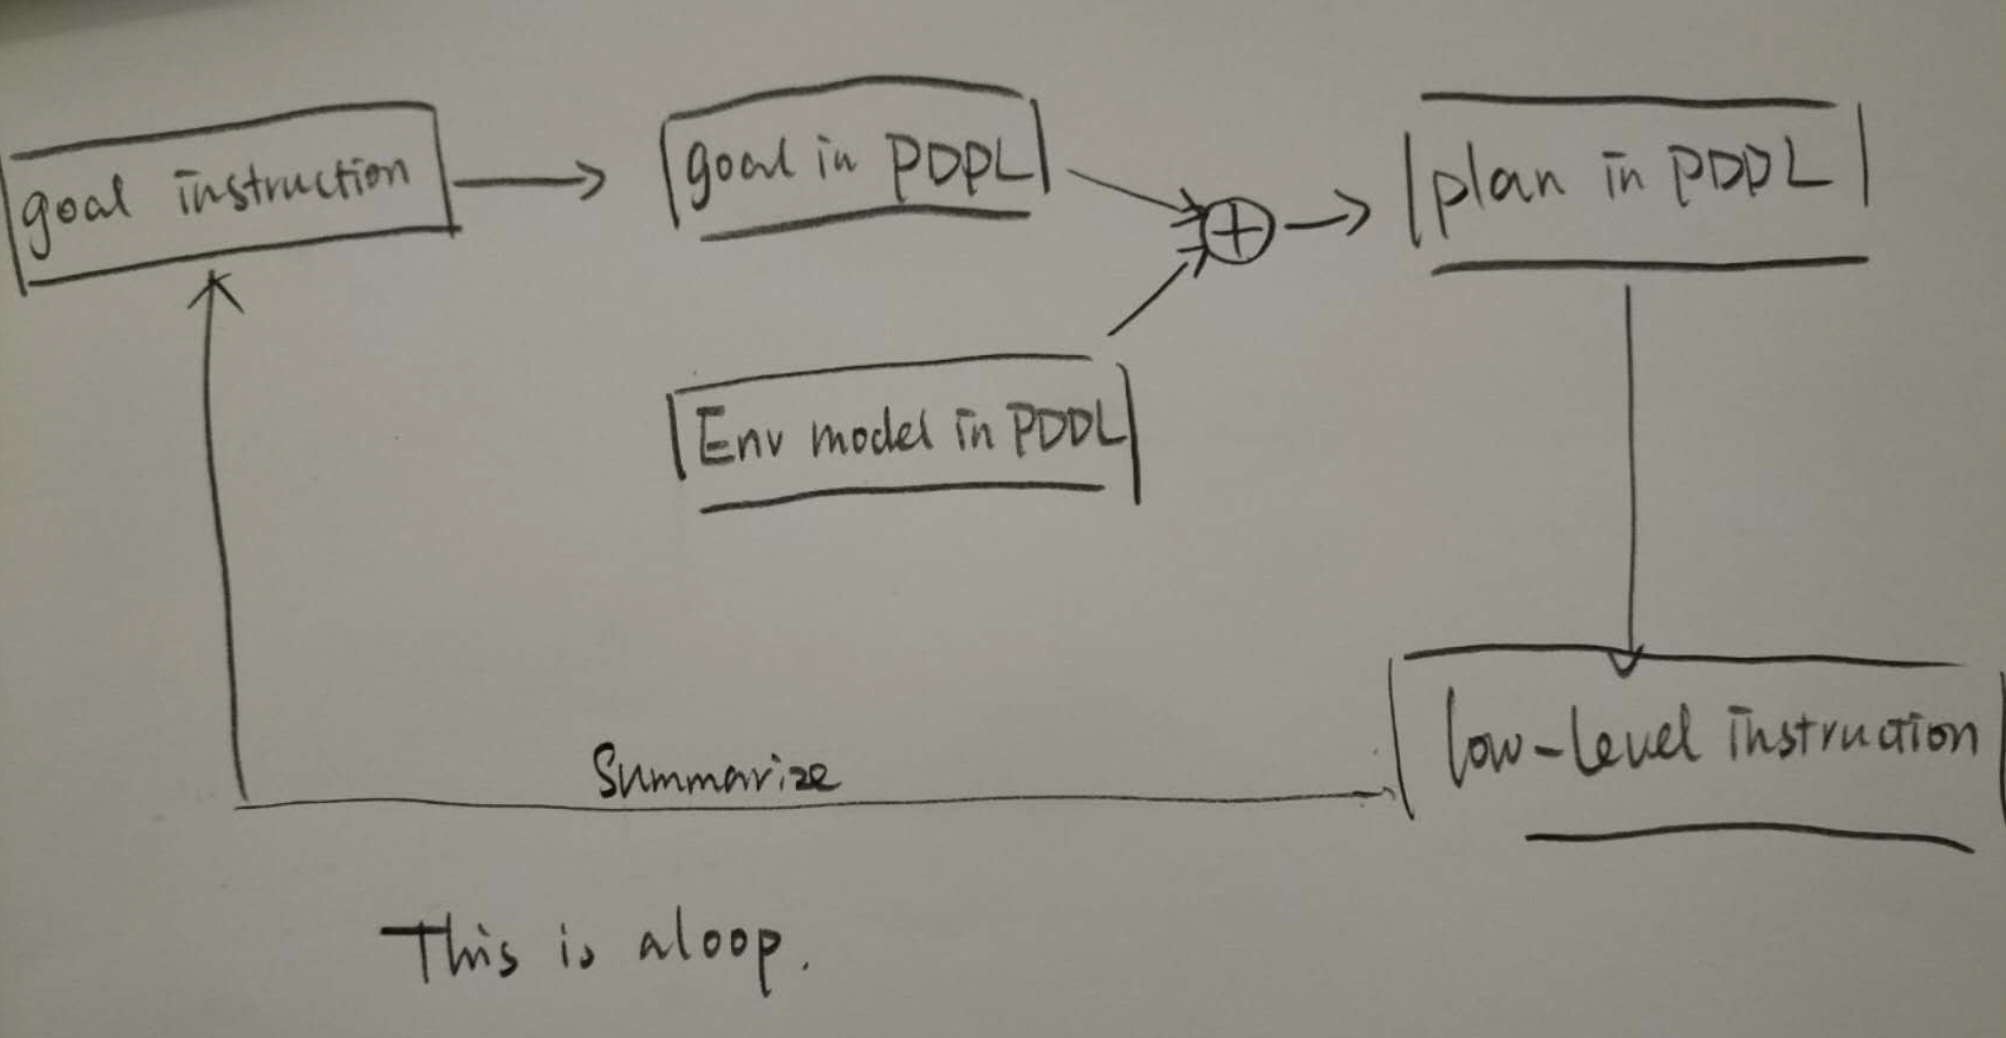 goal instruction
goal in PDDL
plan in PDDL
Env model in PDDL
low-level instruction
Summarize
This is a loop.